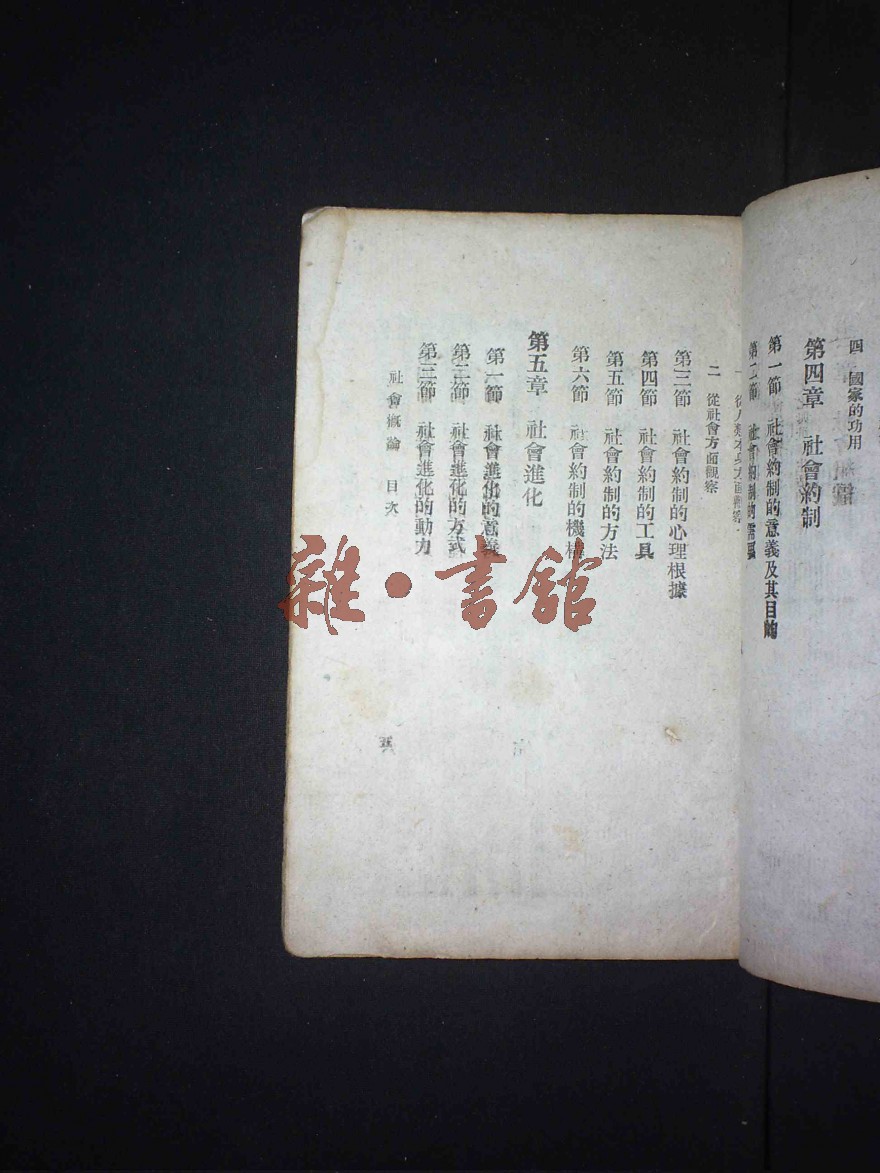 四 國家的功用
第四章 社會約制
第一節 社會約制的意義及其目的
第二節 社會約制的需要
一 從人類本身方面觀察
二 從社會方面觀察
第三節 社會約制的心理根據
第四節 社會約制的工具
第五節 社會約制的方法
第六節 社會約制的機構
第五章 社會進化
第一節 社會進化的意義
第二節 社會進化的方式
第三節 社會進化的動力
社會概論 目次
雜·書館